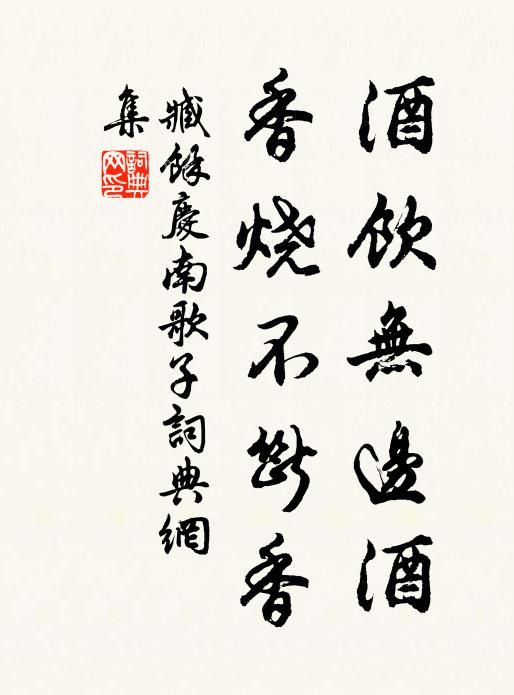 酒飲無邊酒
香燒不斷香
臧餘慶南歌子詞典網
集
詞典網印